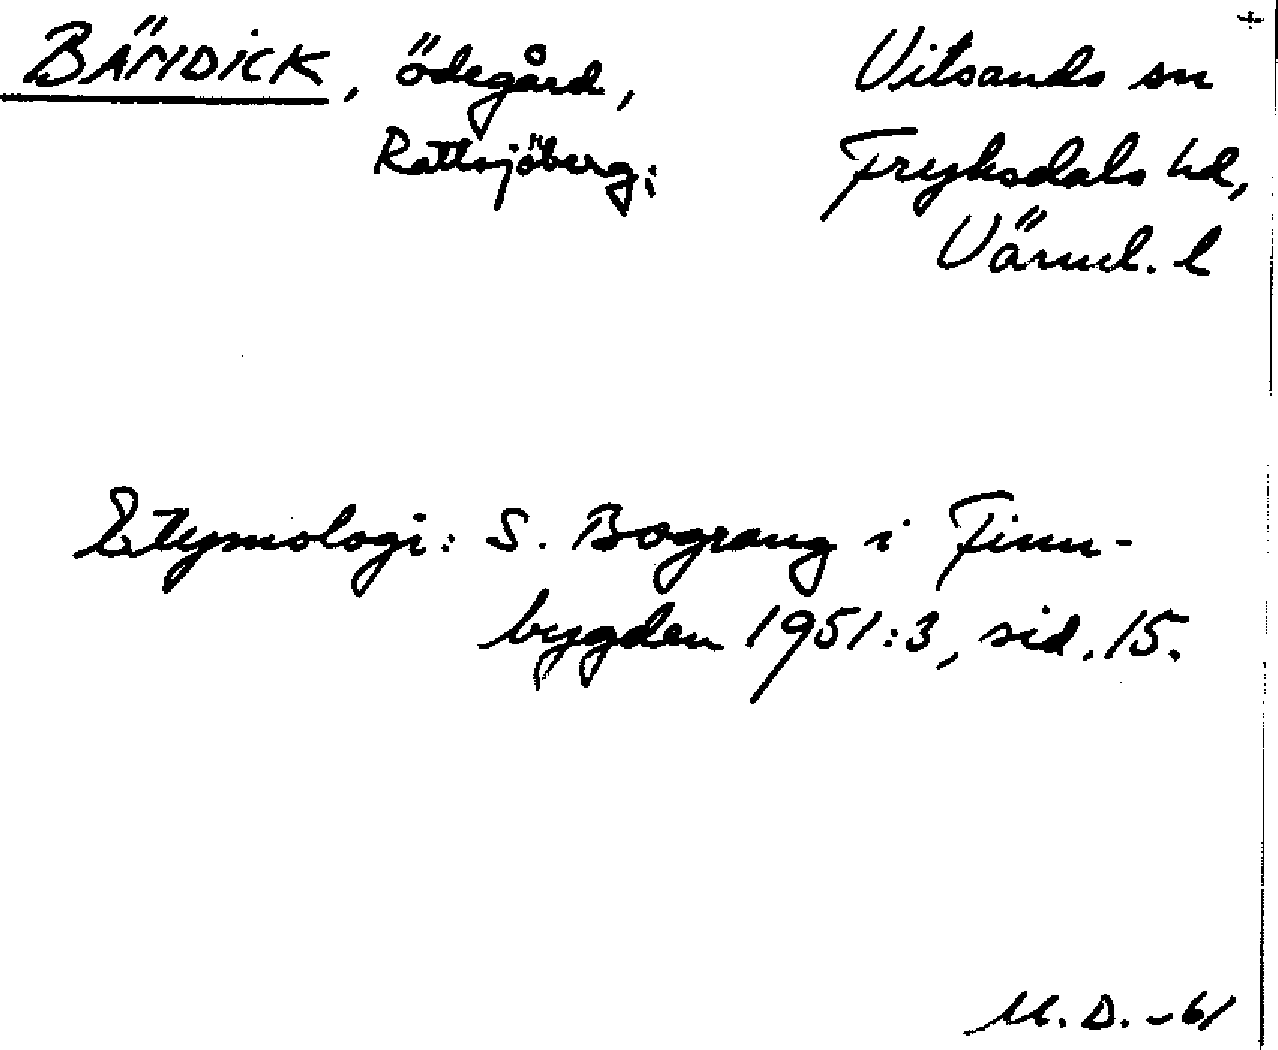 BÄNDICK, ödegård,
Rattsjöberg;
Vitsands sn
Fryksdals hd,
Värml. l
Etymologi: S. Bograng i Finn-
bygden 1951:3, sid. 15.
M. D. -61